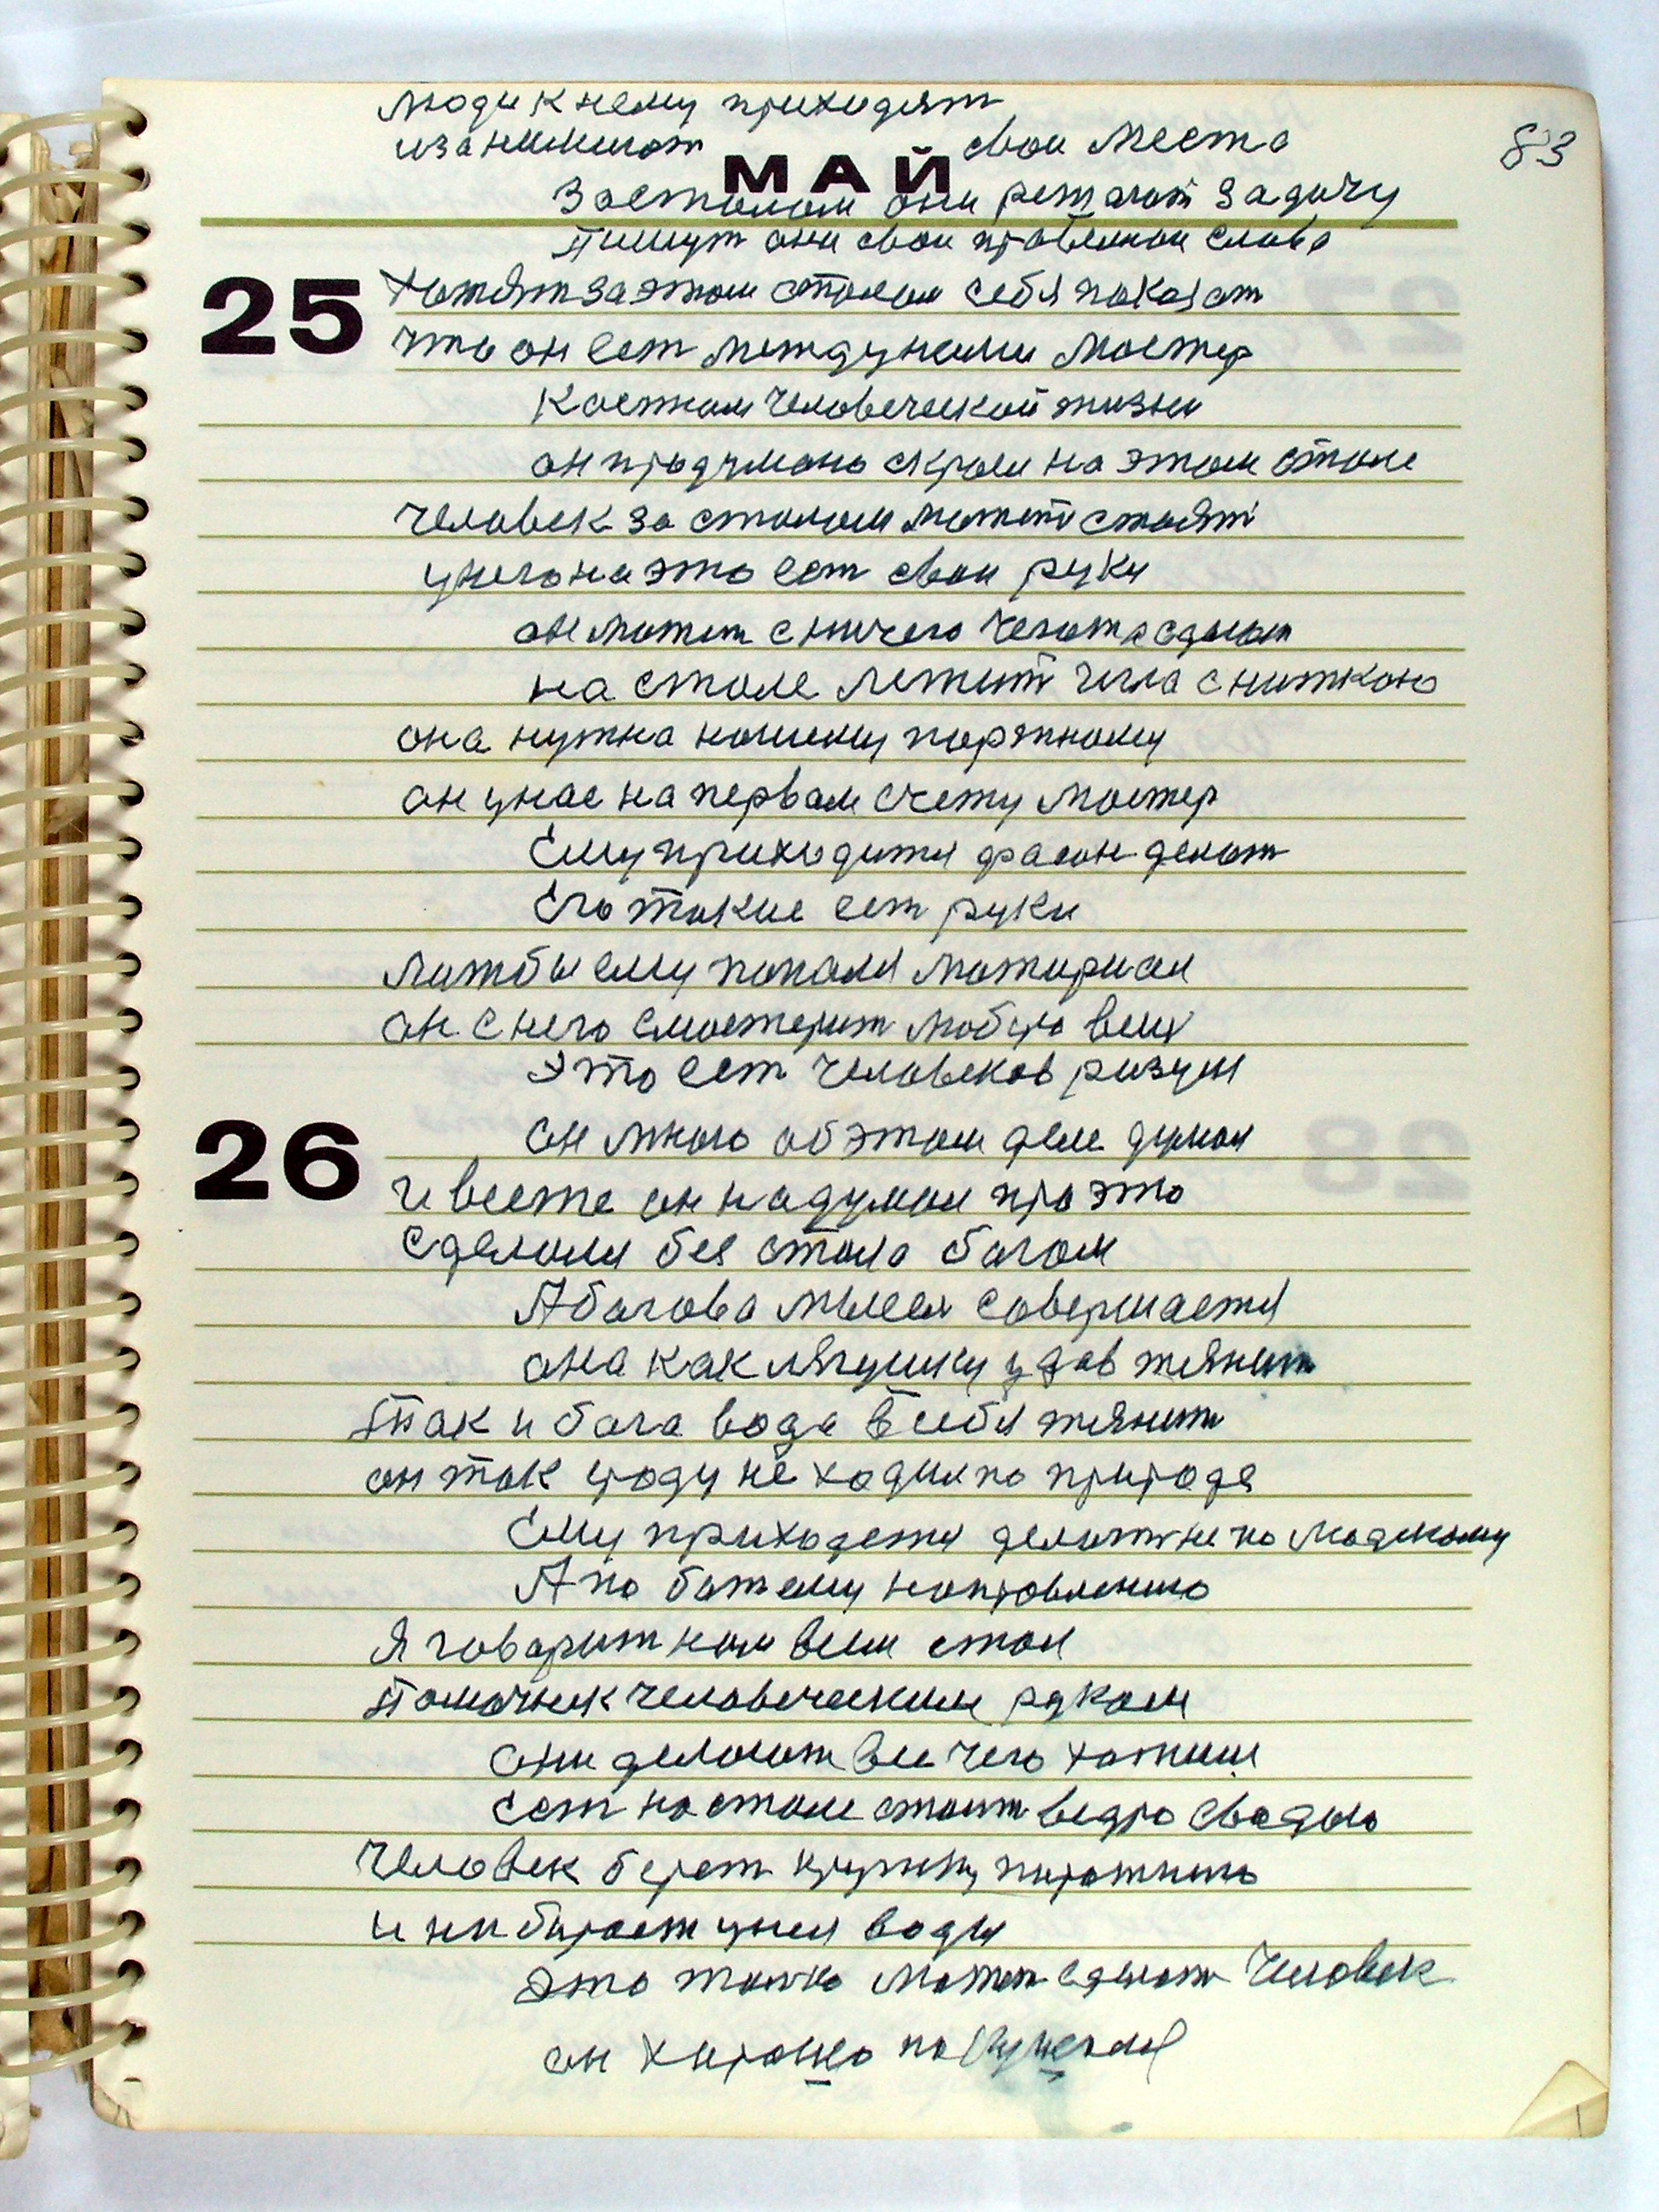 люди к нему приходят
и занимают свои места
83
МАЙ
За столом они решают задачу
Пишут они свои правельнои слова
25
Хотят за этом столом себя показат
что он ест между ними мастер
К остном человеческой жизни
он продумано скроен на этом столе
человек за столом может стоят
у него на это ест свои руки
он может с ничего чегото сделат
на столе лежит игла с ниткою
она нужна нашему портному
он у нас на первом счету мастер
Ему приходится фасон делат
Его такие ест руки
Лишбы ему попался матириал
он с него смастерит любую вещ
Это ест человеков разум
26
он много об этом деле думал
и все те он надумал про это
сделался без стола богом
А богова мысля совершается
она как лягушку удав тянит
Так и бога вода в себя тянит
он так сроду не ходил по природе
Ему приходется делат не по людскому
А по божему направлению
Я говорит нам всем стол
Помочник человеческим рукам
они делают все чего хотиш
Ест на столе стоит ведро с водою
Человек берет кружку порожнюю
и набирает у нея воды
Это толко может сделат Человек
он хорошо покушался